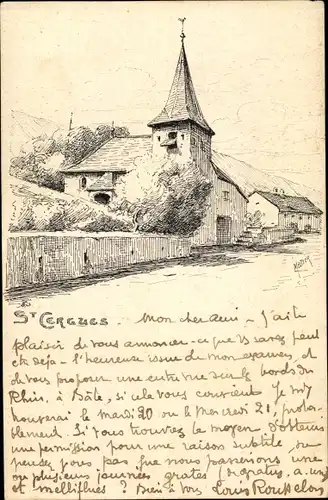 St CERGUES. Mon cher ami - J'ai le
plaisir de vous annoncer - ce que vs savez peut
être déjà - l'heureuse issue de mon examen, et
de vous proposer une entrevue sur les bords du
Rhin, à Bâle, si cela vous convient. Je m'y
trouverai le mardi 20 ou le mercredi 21, proba-
blement. Si vous trouvez le moyen d'obtenir
une permission pour une raison subtile, ne
pensez vous pas que nous passerions une
ou plusieurs journées grates (de gratus, a, um)
et melliflues? Bien à vs. Louis Rousselot